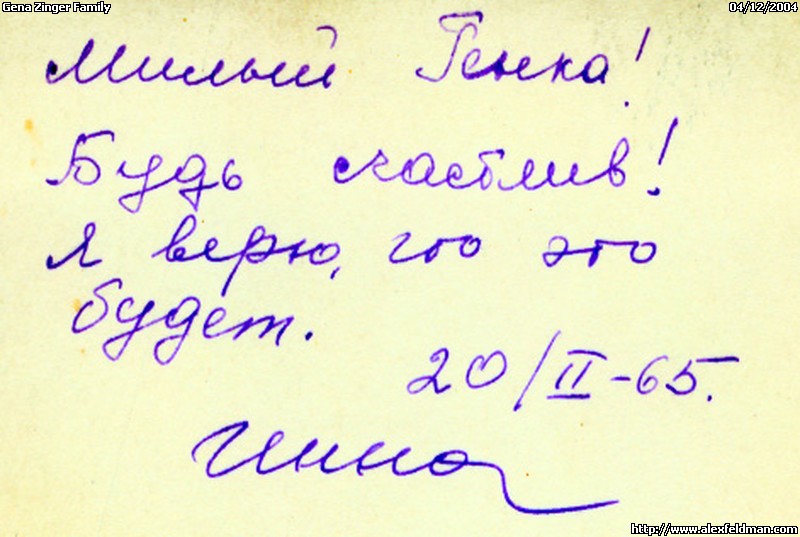 Gena Zinger Family 04/12/2004
Милый Генка!
Будь счастлив!
Я верю, что это
будет.
20/II-65.
Инна
http://www.alexfeldman.com